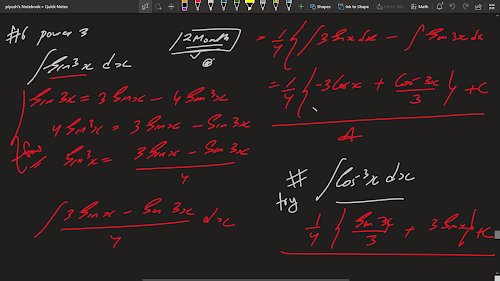 piyush's Notebook » Quick Notes
Shapes
Ink to Shape
Ink to Text
Math
#6 power 3
2 Month
∫ sin³x dx
sin3x = 3 sinx − 4 sin³x
4 sin³x = 3 sinx − sin3x
sin³x = (3 sinx − sin3x)/4
∫ (3 sinx − sin 3x)/4 dx
= 1/4 { ∫ 3 sinx dx − ∫ sin 3x dx
= 1/4 { −3 cosx + cos 3x/3 } + C
A
# ∫ cos³x dx
try
1/4 { sin 3x/3 + 3 sinx } + C